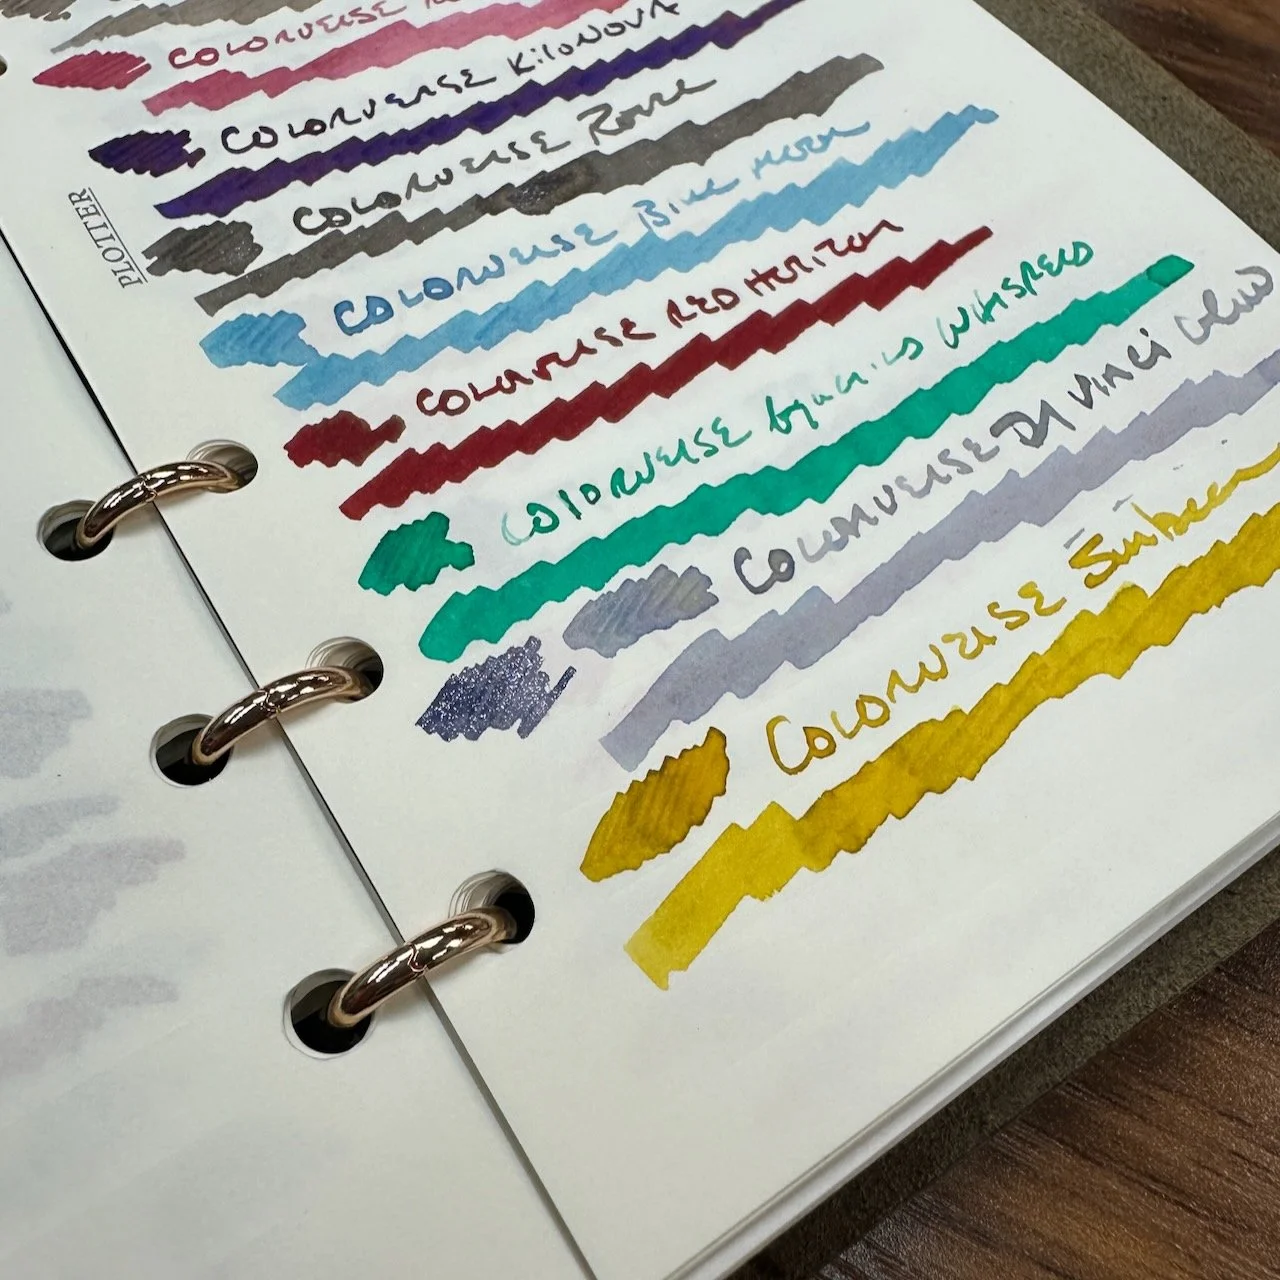 COLORVERSE
COLORVERSE KiloNOVA
COLORVERSE
COLORVERSE Blue Moon
COLORVERSE RED HORIZON
COLORVERSE Aquarius WHISPERS
COLORVERSE DA VINCI
COLORVERSE Sunbeam
PLOTTER